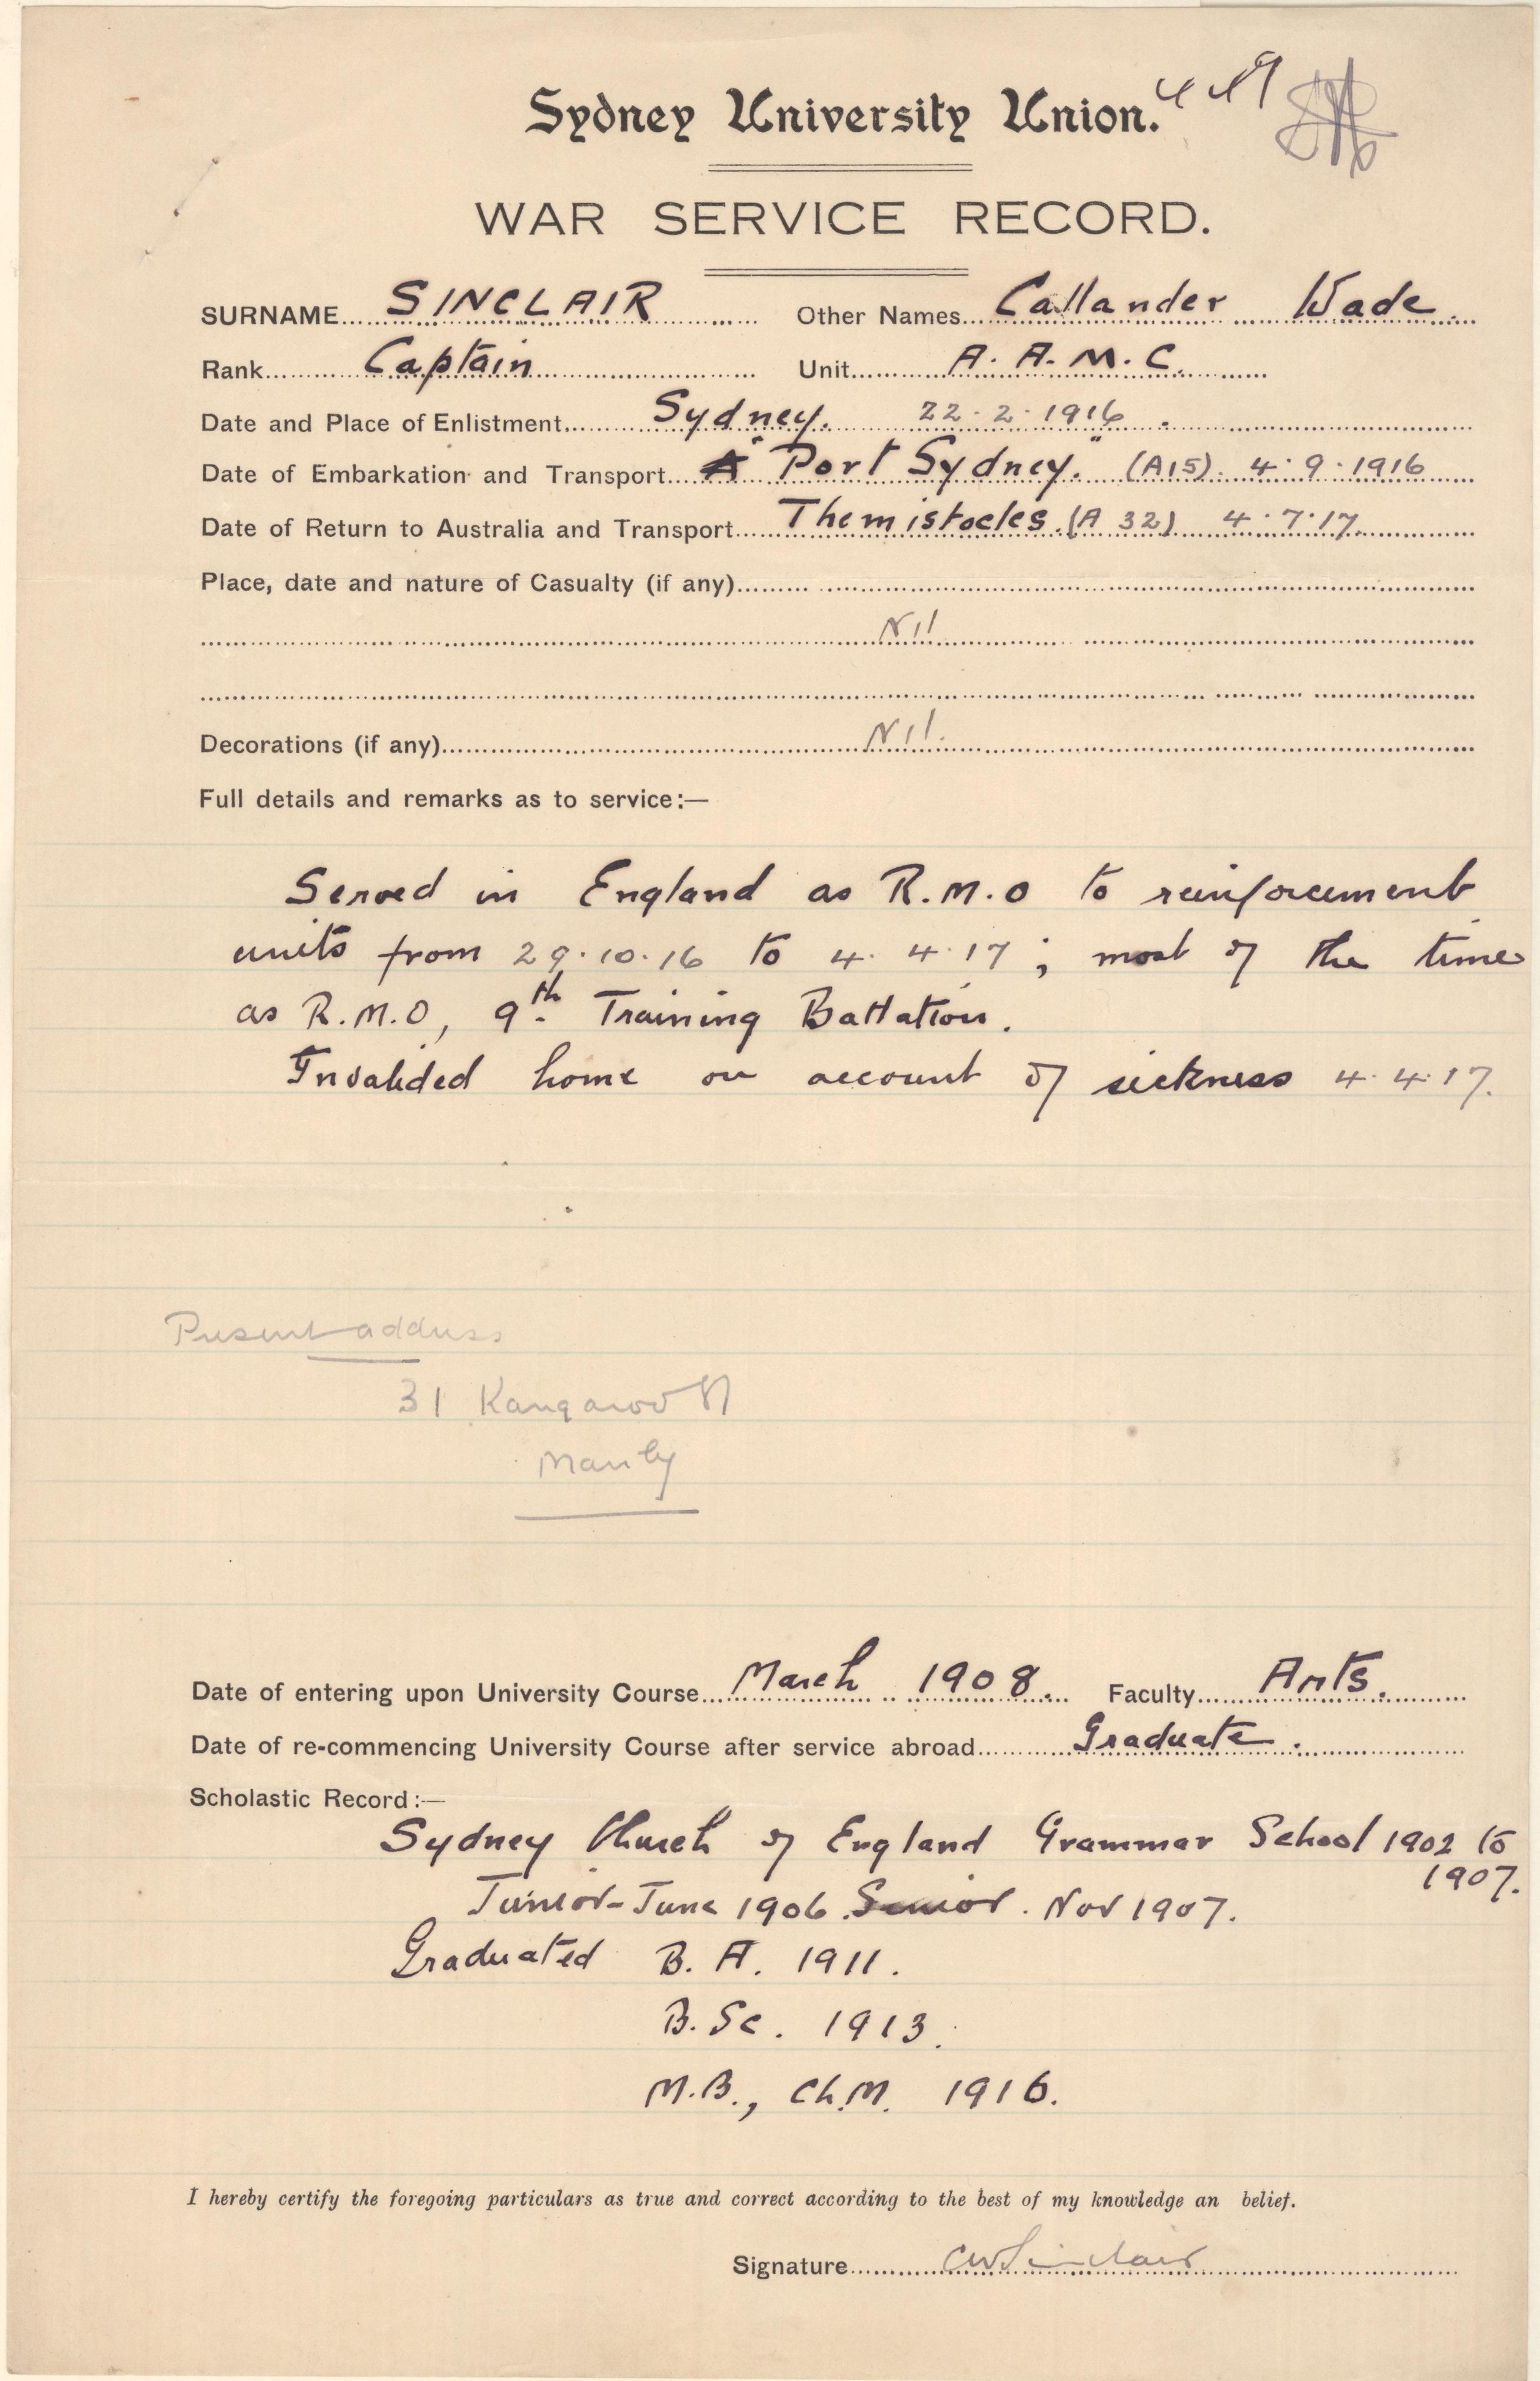 Sydney University Union.
WAR SERVICE RECORD.
SURNAME SINCLAIR Other Names Callander Wade
Rank Captain Unit A. A. M. C.
Date and Place of Enlistment Sydney. 22.2.1916.
Date of Embarkation and Transport "Port Sydney." (A15). 4.9.1916
Date of Return to Australia and Transport Themistocles (A 32) 4.7.17.
Place, date and nature of Casualty (if any)
Nil
Decorations (if any) Nil.
Full details and remarks as to service:—
Served in England as R.M.O to reinforcement
units from 29.10.16 to 4.4.17; most of the time
as R.M.O, 9th Training Battation.
Invalided home on account of sickness 4.4.17.
Present address
31 Kangaroo St
Manly
Date of entering upon University Course March 1908. Faculty Arts.
Date of re-commencing University Course after service abroad Graduate.
Scholastic Record:—
Sydney Church of England Grammar School 1902 to
1907.
Junior - June 1906. Senior. Nov 1907.
Graduated B. A. 1911.
B. Sc. 1913.
M.B., Ch.M. 1916.
I hereby certify the foregoing particulars as true and correct according to the best of my knowledge an belief.
Signature CWSinclair